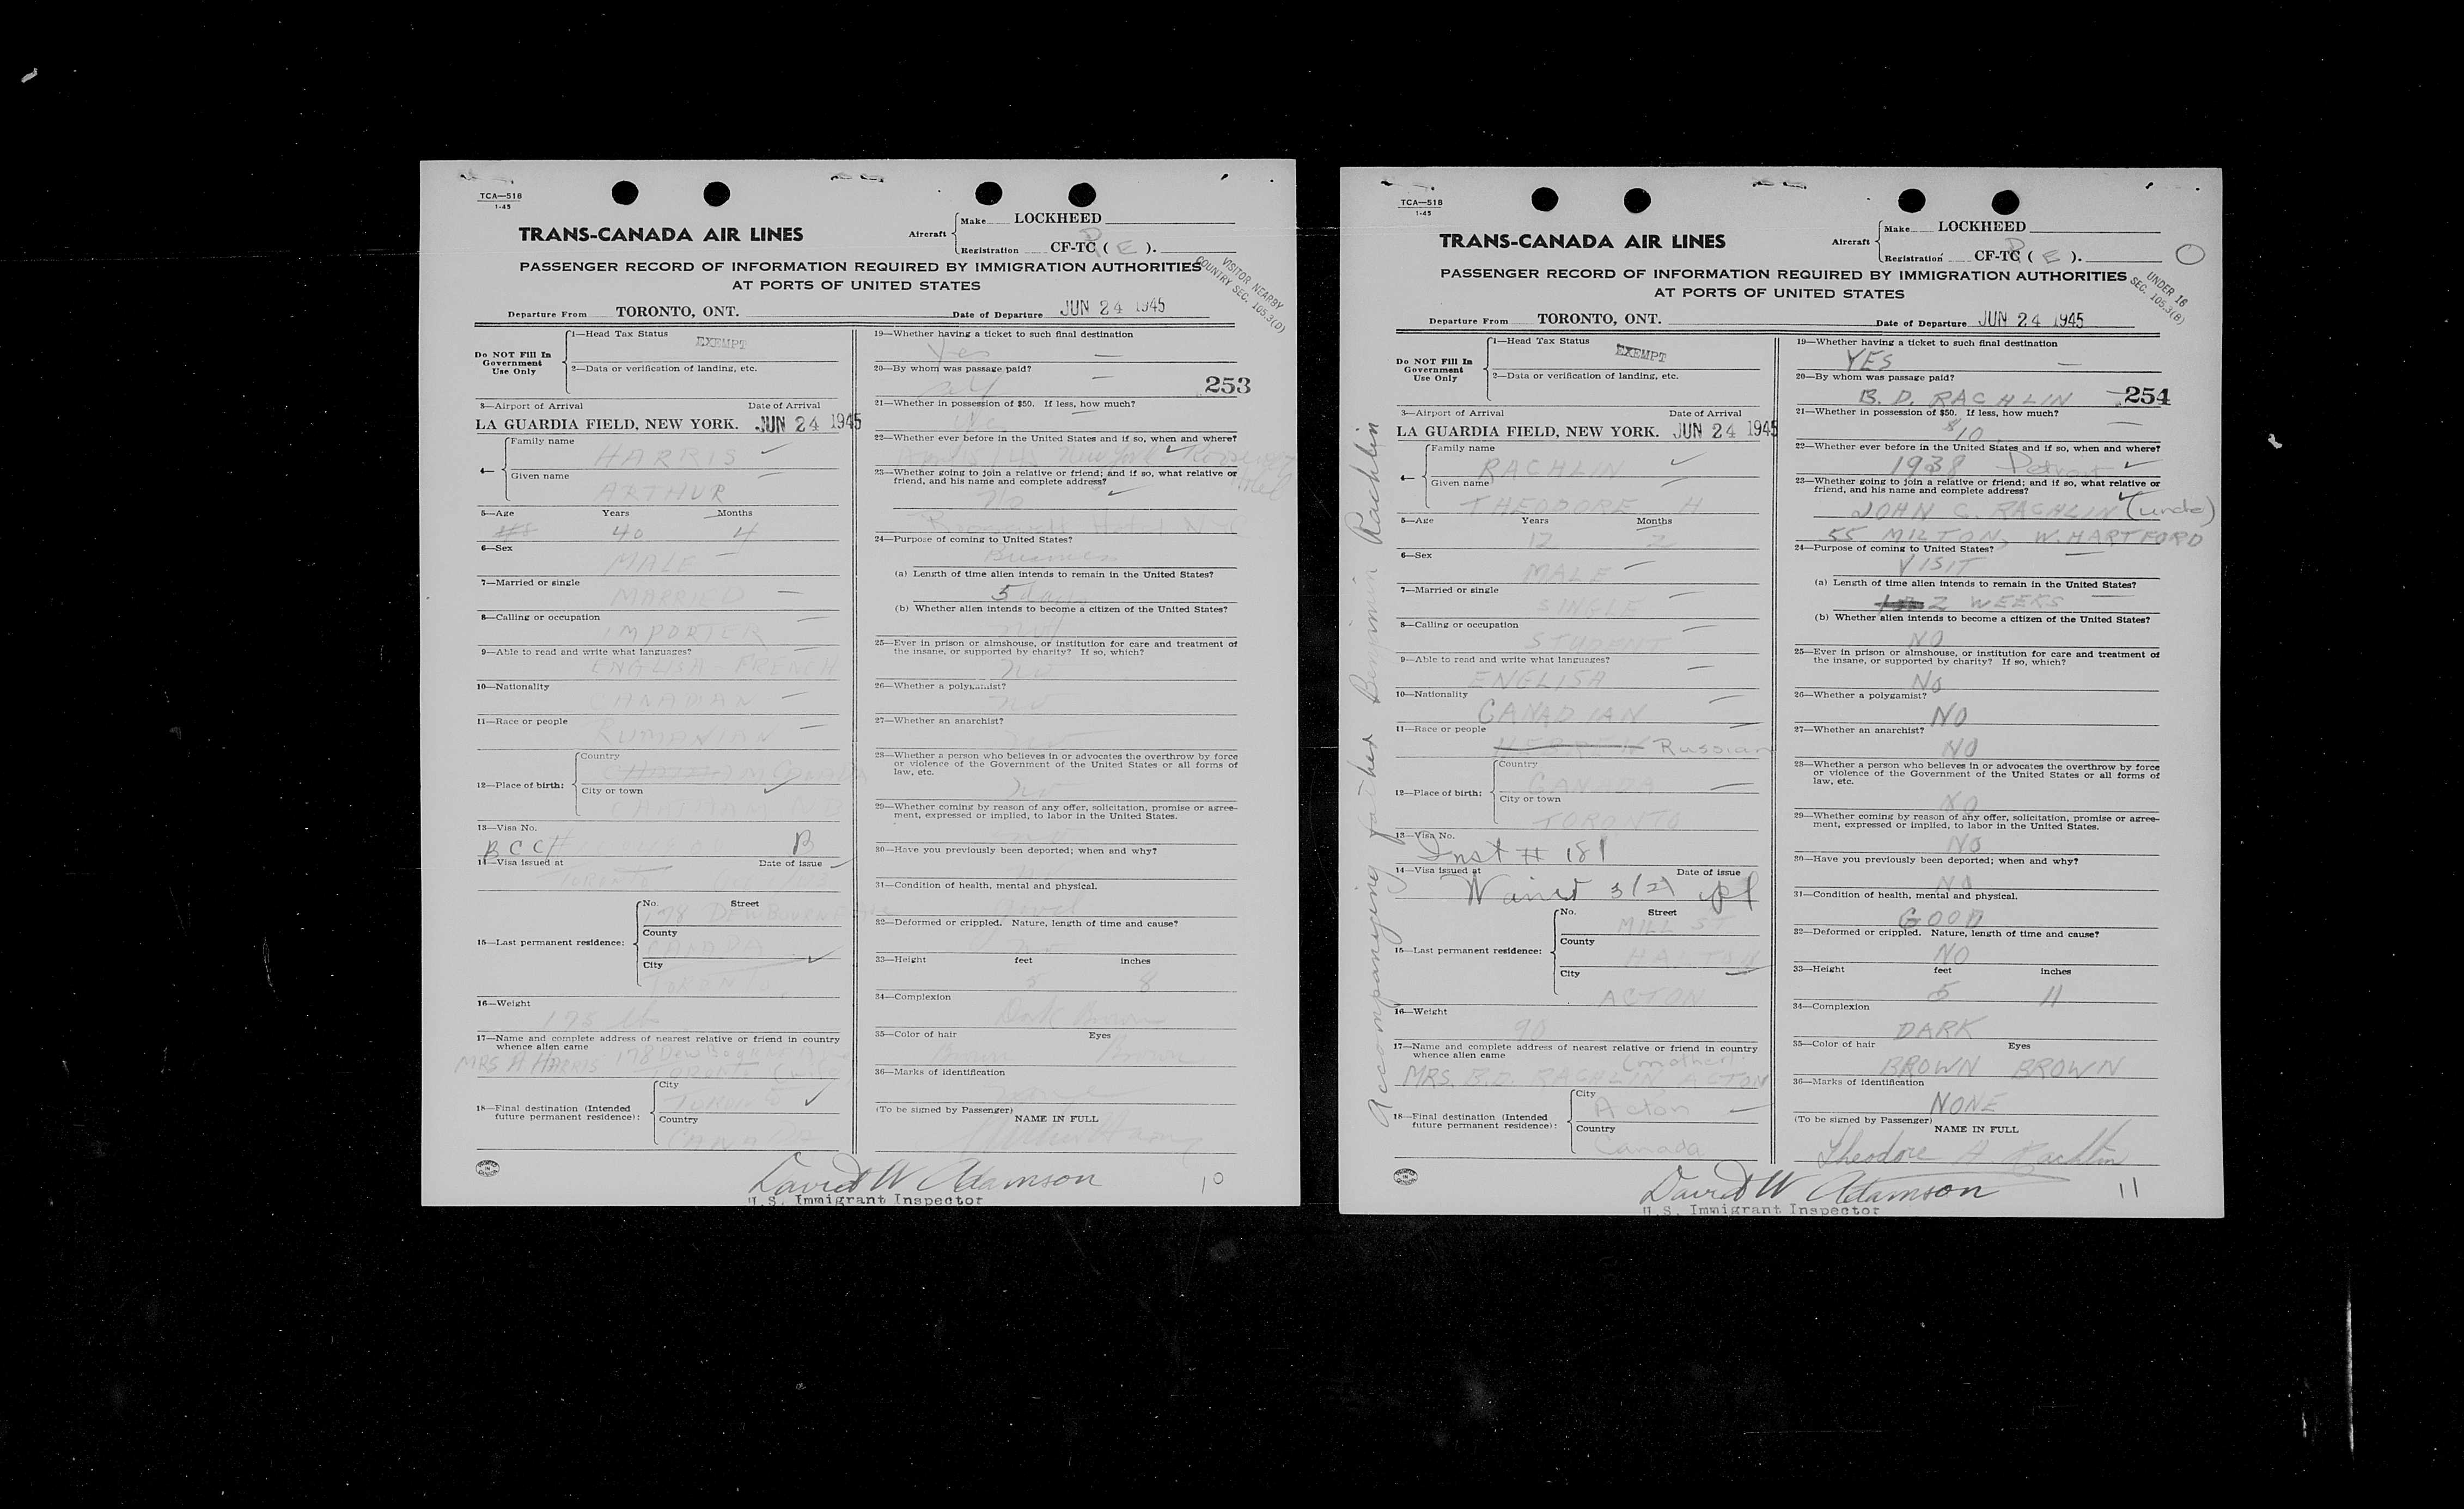 TCA—518
1-45
TRANS-CANADA AIR LINES
Aircraft
Make LOCKHEED
Registration CF-TC ( E ).
PASSENGER RECORD OF INFORMATION REQUIRED BY IMMIGRATION AUTHORITIES
AT PORTS OF UNITED STATES
VISITOR NEARBY
COUNTRY SEC. 105.3(D)
Departure From TORONTO, ONT.
Date of Departure JUN 24 1945
Do NOT Fill In
Government
Use Only
1—Head Tax Status
EXEMPT
2—Data or verification of landing, etc.
3—Airport of Arrival Date of Arrival
LA GUARDIA FIELD, NEW YORK. JUN 24 1945
4—
Family name
HARRIS
Given name
ARTHUR
5—Age Years Months
40 4
6—Sex
MALE
7—Married or single
MARRIED
8—Calling or occupation
IMPORTER
9—Able to read and write what languages?
ENGLISH FRENCH
10—Nationality
11—Race or people
12—Place of birth:
Country
City or town
13—Visa No.
BCC# B
14—Visa issued at Date of issue
TORONTO
15—Last permanent residence:
No. Street
178
County
CANADA
City
TORONTO
16—Weight
175
17—Name and complete address of nearest relative or friend in country
whence alien came
MRS A HARRIS 178
TORONTO
18—Final destination (Intended
future permanent residence):
City
Country
CANADA
19—Whether having a ticket to such final destination
Yes
20—By whom was passage paid?
253
21—Whether in possession of $50. If less, how much?
22—Whether ever before in the United States and if so, when and where?
New York
23—Whether going to join a relative or friend; and if so, what relative or
friend, and his name and complete address?
No
Roosevelt Hotel
24—Purpose of coming to United States?
Business
(a) Length of time alien intends to remain in the United States?
5 days
(b) Whether alien intends to become a citizen of the United States?
25—Ever in prison or almshouse, or institution for care and treatment of
the insane, or supported by charity? If so, which?
No
26—Whether a polygamist?
No
27—Whether an anarchist?
28—Whether a person who believes in or advocates the overthrow by force
or violence of the Government of the United States or all forms of
law, etc.
No
29—Whether coming by reason of any offer, solicitation, promise or agree-
ment, expressed or implied, to labor in the United States.
30—Have you previously been deported; when and why?
31—Condition of health, mental and physical.
Good
32—Deformed or crippled. Nature, length of time and cause?
No
33—Height feet inches
5 8
34—Complexion
Dark Brown
35—Color of hair Eyes
Brown Brown
36—Marks of identification
(To be signed by Passenger)
NAME IN FULL
David W Adamson
U.S. Immigrant Inspector
10
TCA—518
1-45
TRANS-CANADA AIR LINES
Aircraft
Make LOCKHEED
Registration CF-TC ( E ).
PASSENGER RECORD OF INFORMATION REQUIRED BY IMMIGRATION AUTHORITIES
AT PORTS OF UNITED STATES
UNDER 16
SEC. 105.3(B)
Departure From TORONTO, ONT.
Date of Departure JUN 24 1945
Accompanying father Benjamin Rachlin
Do NOT Fill In
Government
Use Only
1—Head Tax Status
EXEMPT
2—Data or verification of landing, etc.
3—Airport of Arrival Date of Arrival
LA GUARDIA FIELD, NEW YORK. JUN 24 1945
4—
Family name
RACHLIN
Given name
THEODORE H
5—Age Years Months
12 2
6—Sex
MALE
7—Married or single
SINGLE
8—Calling or occupation
STUDENT
9—Able to read and write what languages?
ENGLISH
10—Nationality
CANADIAN
11—Race or people
HEBREW Russian
12—Place of birth:
Country
CANADA
City or town
TORONTO
13—Visa No.
Inst # 181
14—Visa issued at Date of issue
Waived 3(2)
15—Last permanent residence:
No. Street
MILL ST
County
HALTON
City
ACTON
16—Weight
90
17—Name and complete address of nearest relative or friend in country
whence alien came
(mother)
MRS. B.D. RACHLIN, ACTON
18—Final destination (Intended
future permanent residence):
City
Acton
Country
Canada
19—Whether having a ticket to such final destination
YES
20—By whom was passage paid?
B. D. RACHLIN 254
21—Whether in possession of $50. If less, how much?
$10
22—Whether ever before in the United States and if so, when and where?
1938 Detroit
23—Whether going to join a relative or friend; and if so, what relative or
friend, and his name and complete address?
JOHN C. RACHLIN (uncle)
55 MILTON, W. HARTFORD
24—Purpose of coming to United States?
VISIT
(a) Length of time alien intends to remain in the United States?
2 WEEKS
(b) Whether alien intends to become a citizen of the United States?
NO
25—Ever in prison or almshouse, or institution for care and treatment of
the insane, or supported by charity? If so, which?
No
26—Whether a polygamist?
NO
27—Whether an anarchist?
NO
28—Whether a person who believes in or advocates the overthrow by force
or violence of the Government of the United States or all forms of
law, etc.
NO
29—Whether coming by reason of any offer, solicitation, promise or agree-
ment, expressed or implied, to labor in the United States.
NO
30—Have you previously been deported; when and why?
NO
31—Condition of health, mental and physical.
GOOD
32—Deformed or crippled. Nature, length of time and cause?
NO
33—Height feet inches
5 11
34—Complexion
DARK
35—Color of hair Eyes
BROWN BROWN
36—Marks of identification
NONE
(To be signed by Passenger)
NAME IN FULL
Theodore H. Rachlin
David W Adamson
U.S. Immigrant Inspector
11